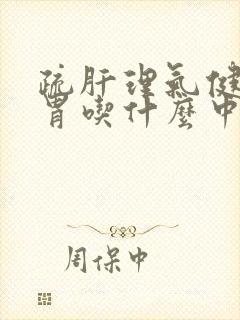 疏肝理氣健
胃喫什麼中
周保中